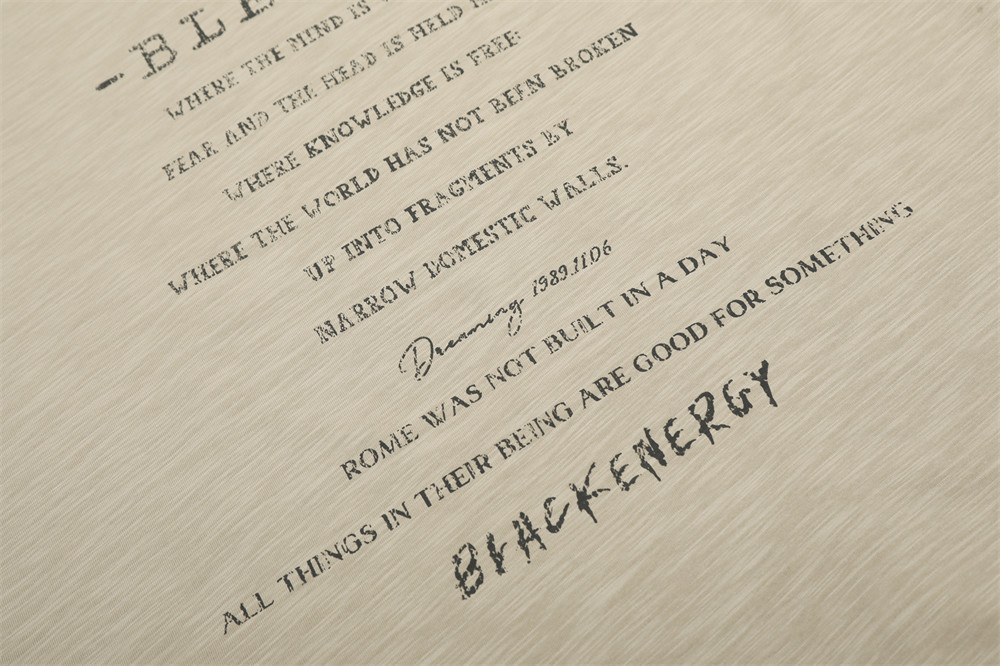 -BLE
WHERE THE MIND IS
FEAR AND THE HEAD IS HELD
WHERE KNOWLEDGE IS FREE:
WHERE THE WORLD HAS NOT BEEN BROKEN
UP INTO FRAGMENTS BY
NARROW DOMESTIC WALLS.
Dreaming 1989.11.06
ROME WAS NOT BUILT IN A DAY
ALL THINGS IN THEIR BEING ARE GOOD FOR SOMETHING
BLACKENERGY